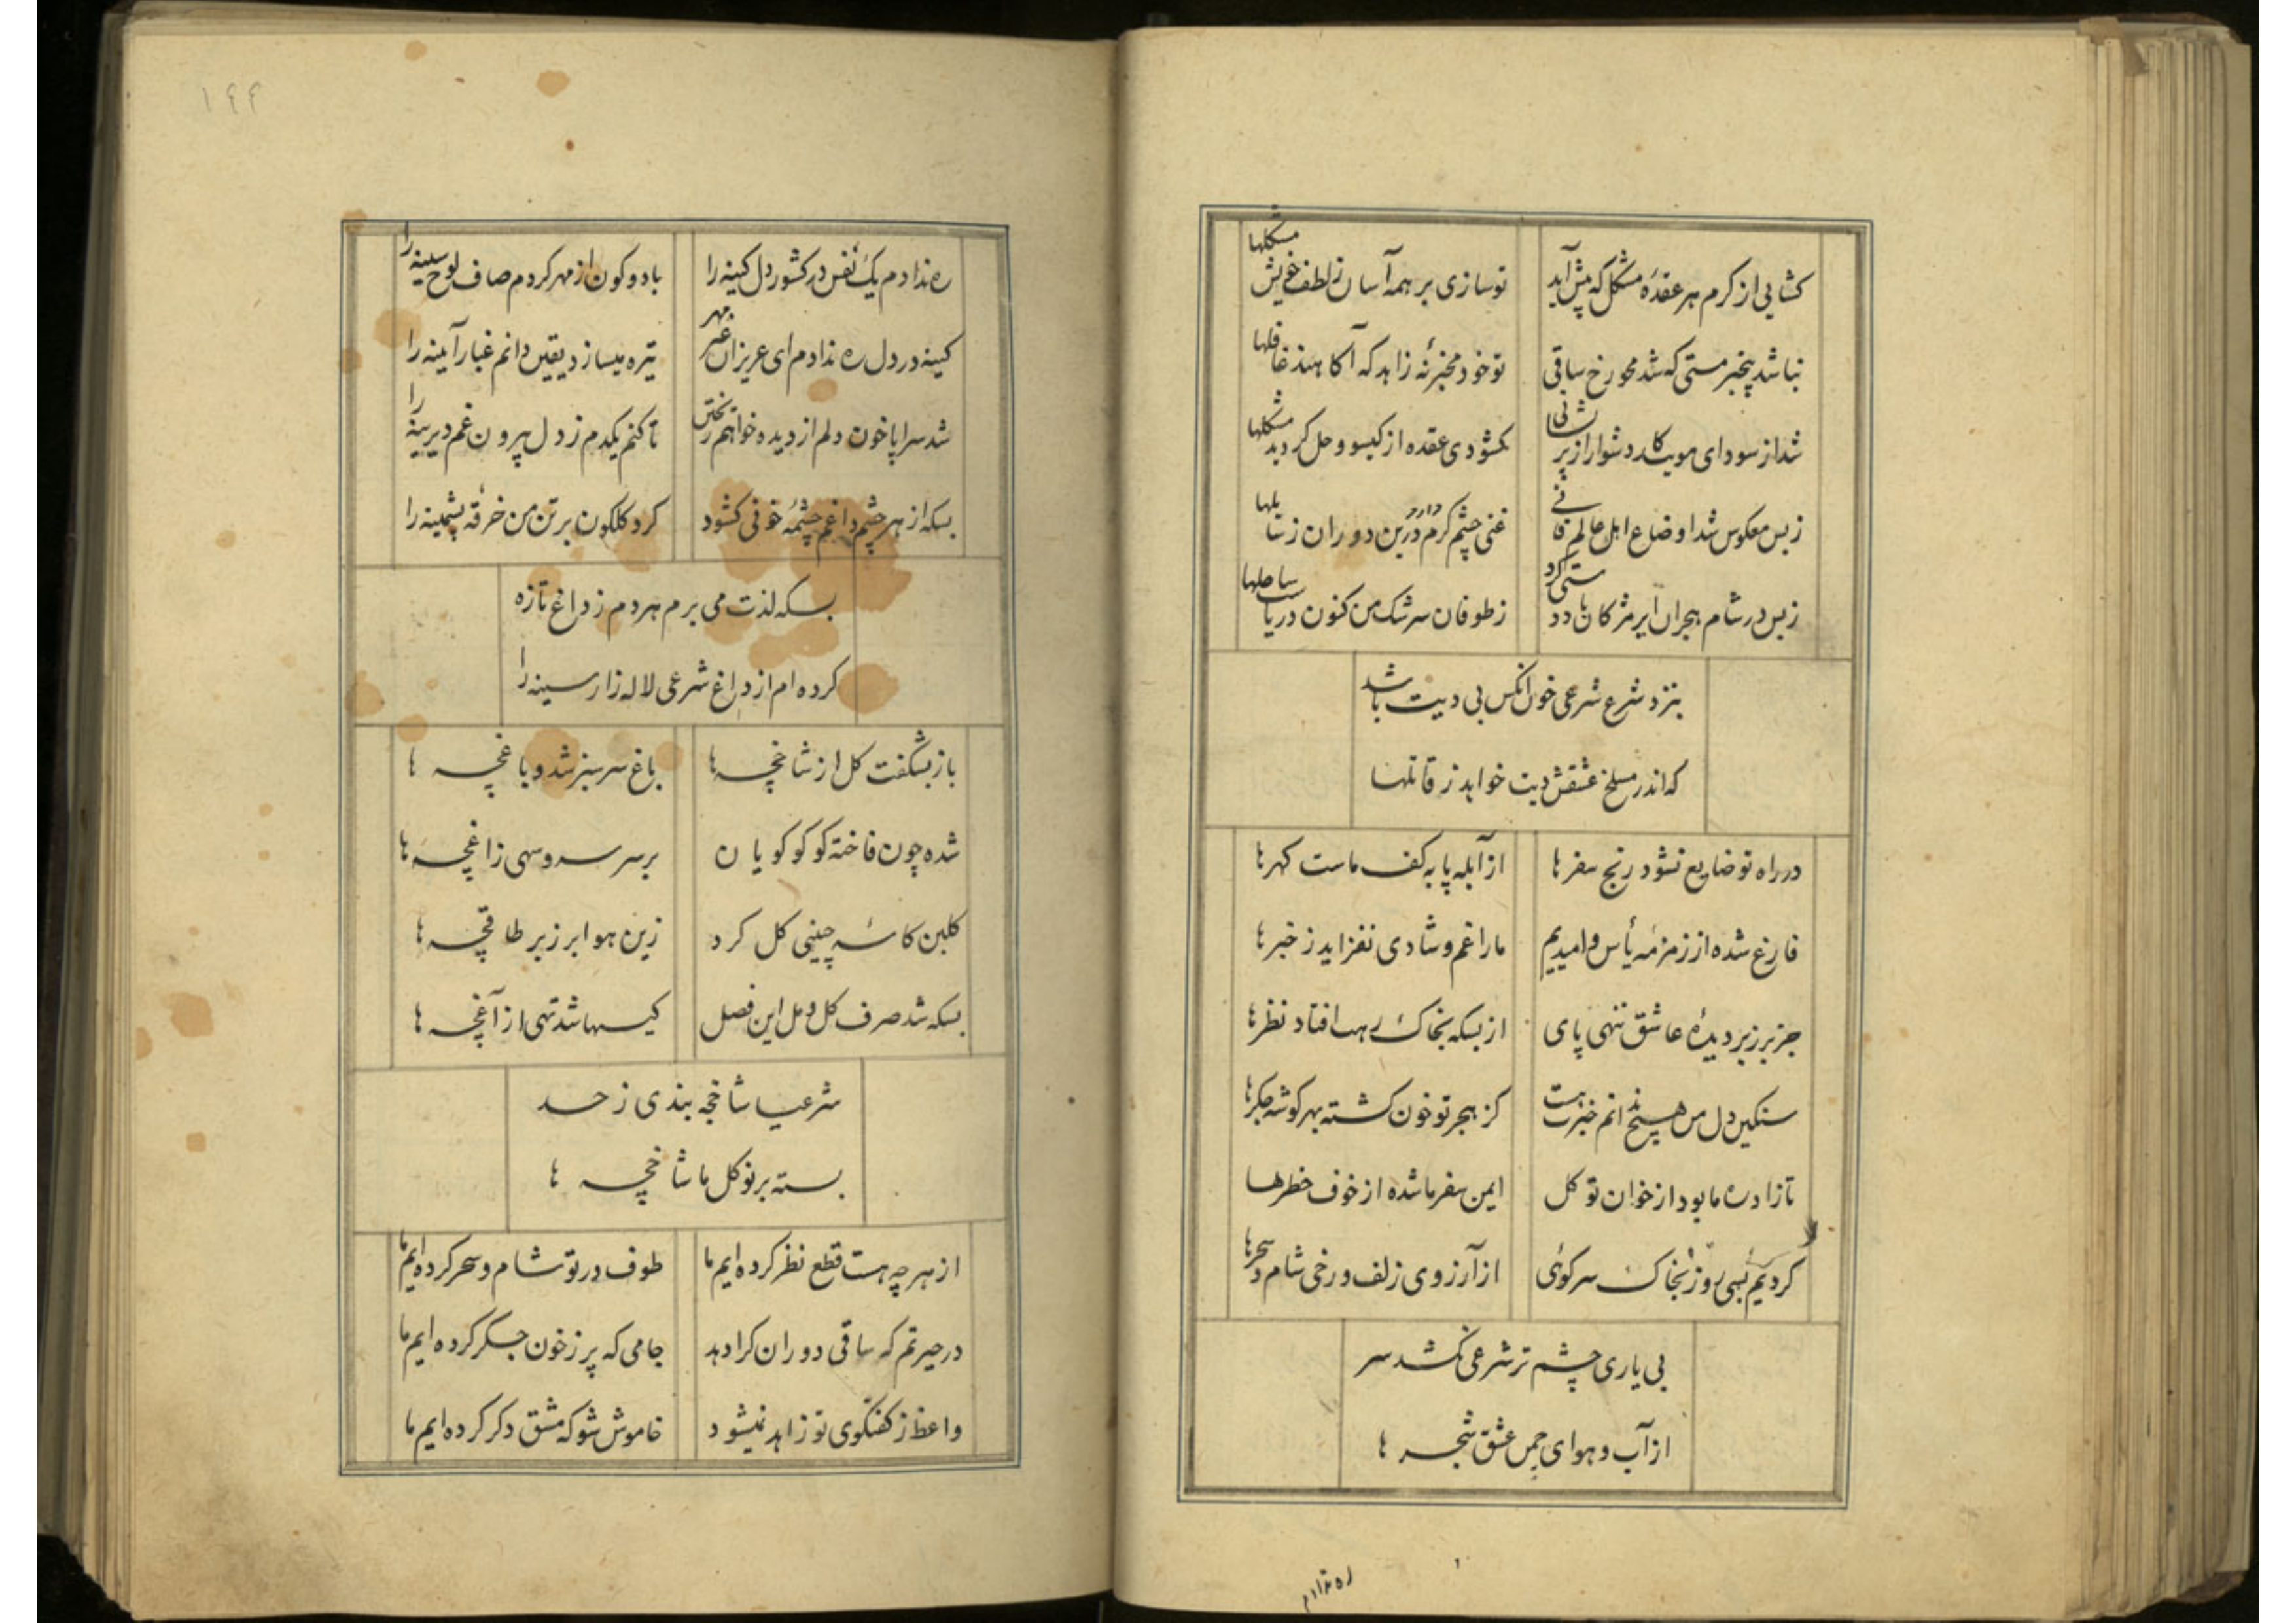 کشایی از کرم هر عقدهٔ مشکل که پیش آید تو سازی بر همه آسان زلطف خویش مشکلها
نباشد بیخبر مستی که شد محو رخ ساقی تو خود مخبر نهٔ زاهد که آکاهند غافلها
شد از سودای مویت کار دشوار از پریشانی کشودی عقده از کیسو و حل کردید مشکلها
ز بس معکوس شد اوضاع اهل عالم فانی غنی چشم کرم دارد درین دوران ز سایلها
ز بس در شام هجران ابر مژکان تا دودستی کرد ز طوفان سرشک من کنون دریاست ساحلها
بنزد شرع شرعی خون انکس بی دیت باشد
که اندر مسلخ عشقش دیت خواهد ز قاتلها
در راه تو ضایع نشود رنج سفرها از آبله پا به کف ماست کهرها
فارغ شده از زمزمهٔ یأس و امیدیم ما را غم و شادی نفزاید ز خبرها
جز بر زبر دیدهٔ عاشق ننهی پای از بسکه بخاک رهت افتاد نظرها
سنکین دل من هیچ ندانم خبرت هست کز هجر تو خون کشته بهر کوشه جکرها
تا زاد ره ما بود از خوان توکل ایمن سفر ما شده از خوف خطرها
کردیم بسی روز بخاک سر کوئی از آرزوی زلف و رخی شام و سحرها
بی یاری چشم تر شرعی نکشد سر
از آب و هوای چمن عشق شجر ها
ره ندادم
۱۴۴
ره ندادم یک نفس در کشور دل کینه را با دو کون از مهر کردم صاف لوح سینه را
کینه در دل ره ندادم ای عزیزان غیر مهر تیره میسازد یقین دانم غبار آیینه را
شد سراپا خون دلم از دیده خواهم ریختن تا کنم یکدم ز دل بیرون غم دیرینه را
بسکه از هر چشم داغم چشمهٔ خونی کشود کرد کلکون بر تن من خرقه پشمینه را
بسکه لذت می برم هر دم ز داغ تازه
کرده ام از داغ شرعی لاله زار سینه را
باز بشکفت کل از شاخچه ها باغ سر سبز شد و باغچه ها
شده چون فاخته کو کو کویان بر سر سرو سهی زاغچه ها
کلبن کاسهٔ چینی کل کرد زین هوا بر زبر طاقچه ها
بسکه شد صرف کل و مل این فصل کیسها شد تهی از آغچه ها
شرعیا شاخچه بندی ز حسد
بسته بر نوکل ما شاخچه ها
از هر چه هست قطع نظر کرده ایم ما طوف در تو شام و سحر کرده ایم ما
در حیرتم که ساقی دوران کرا دهد جامی که پر ز خون جکر کرده ایم ما
واعظ ز کفتکوی تو زاهد نمیشود خاموش شو که مشق دکر کرده ایم ما